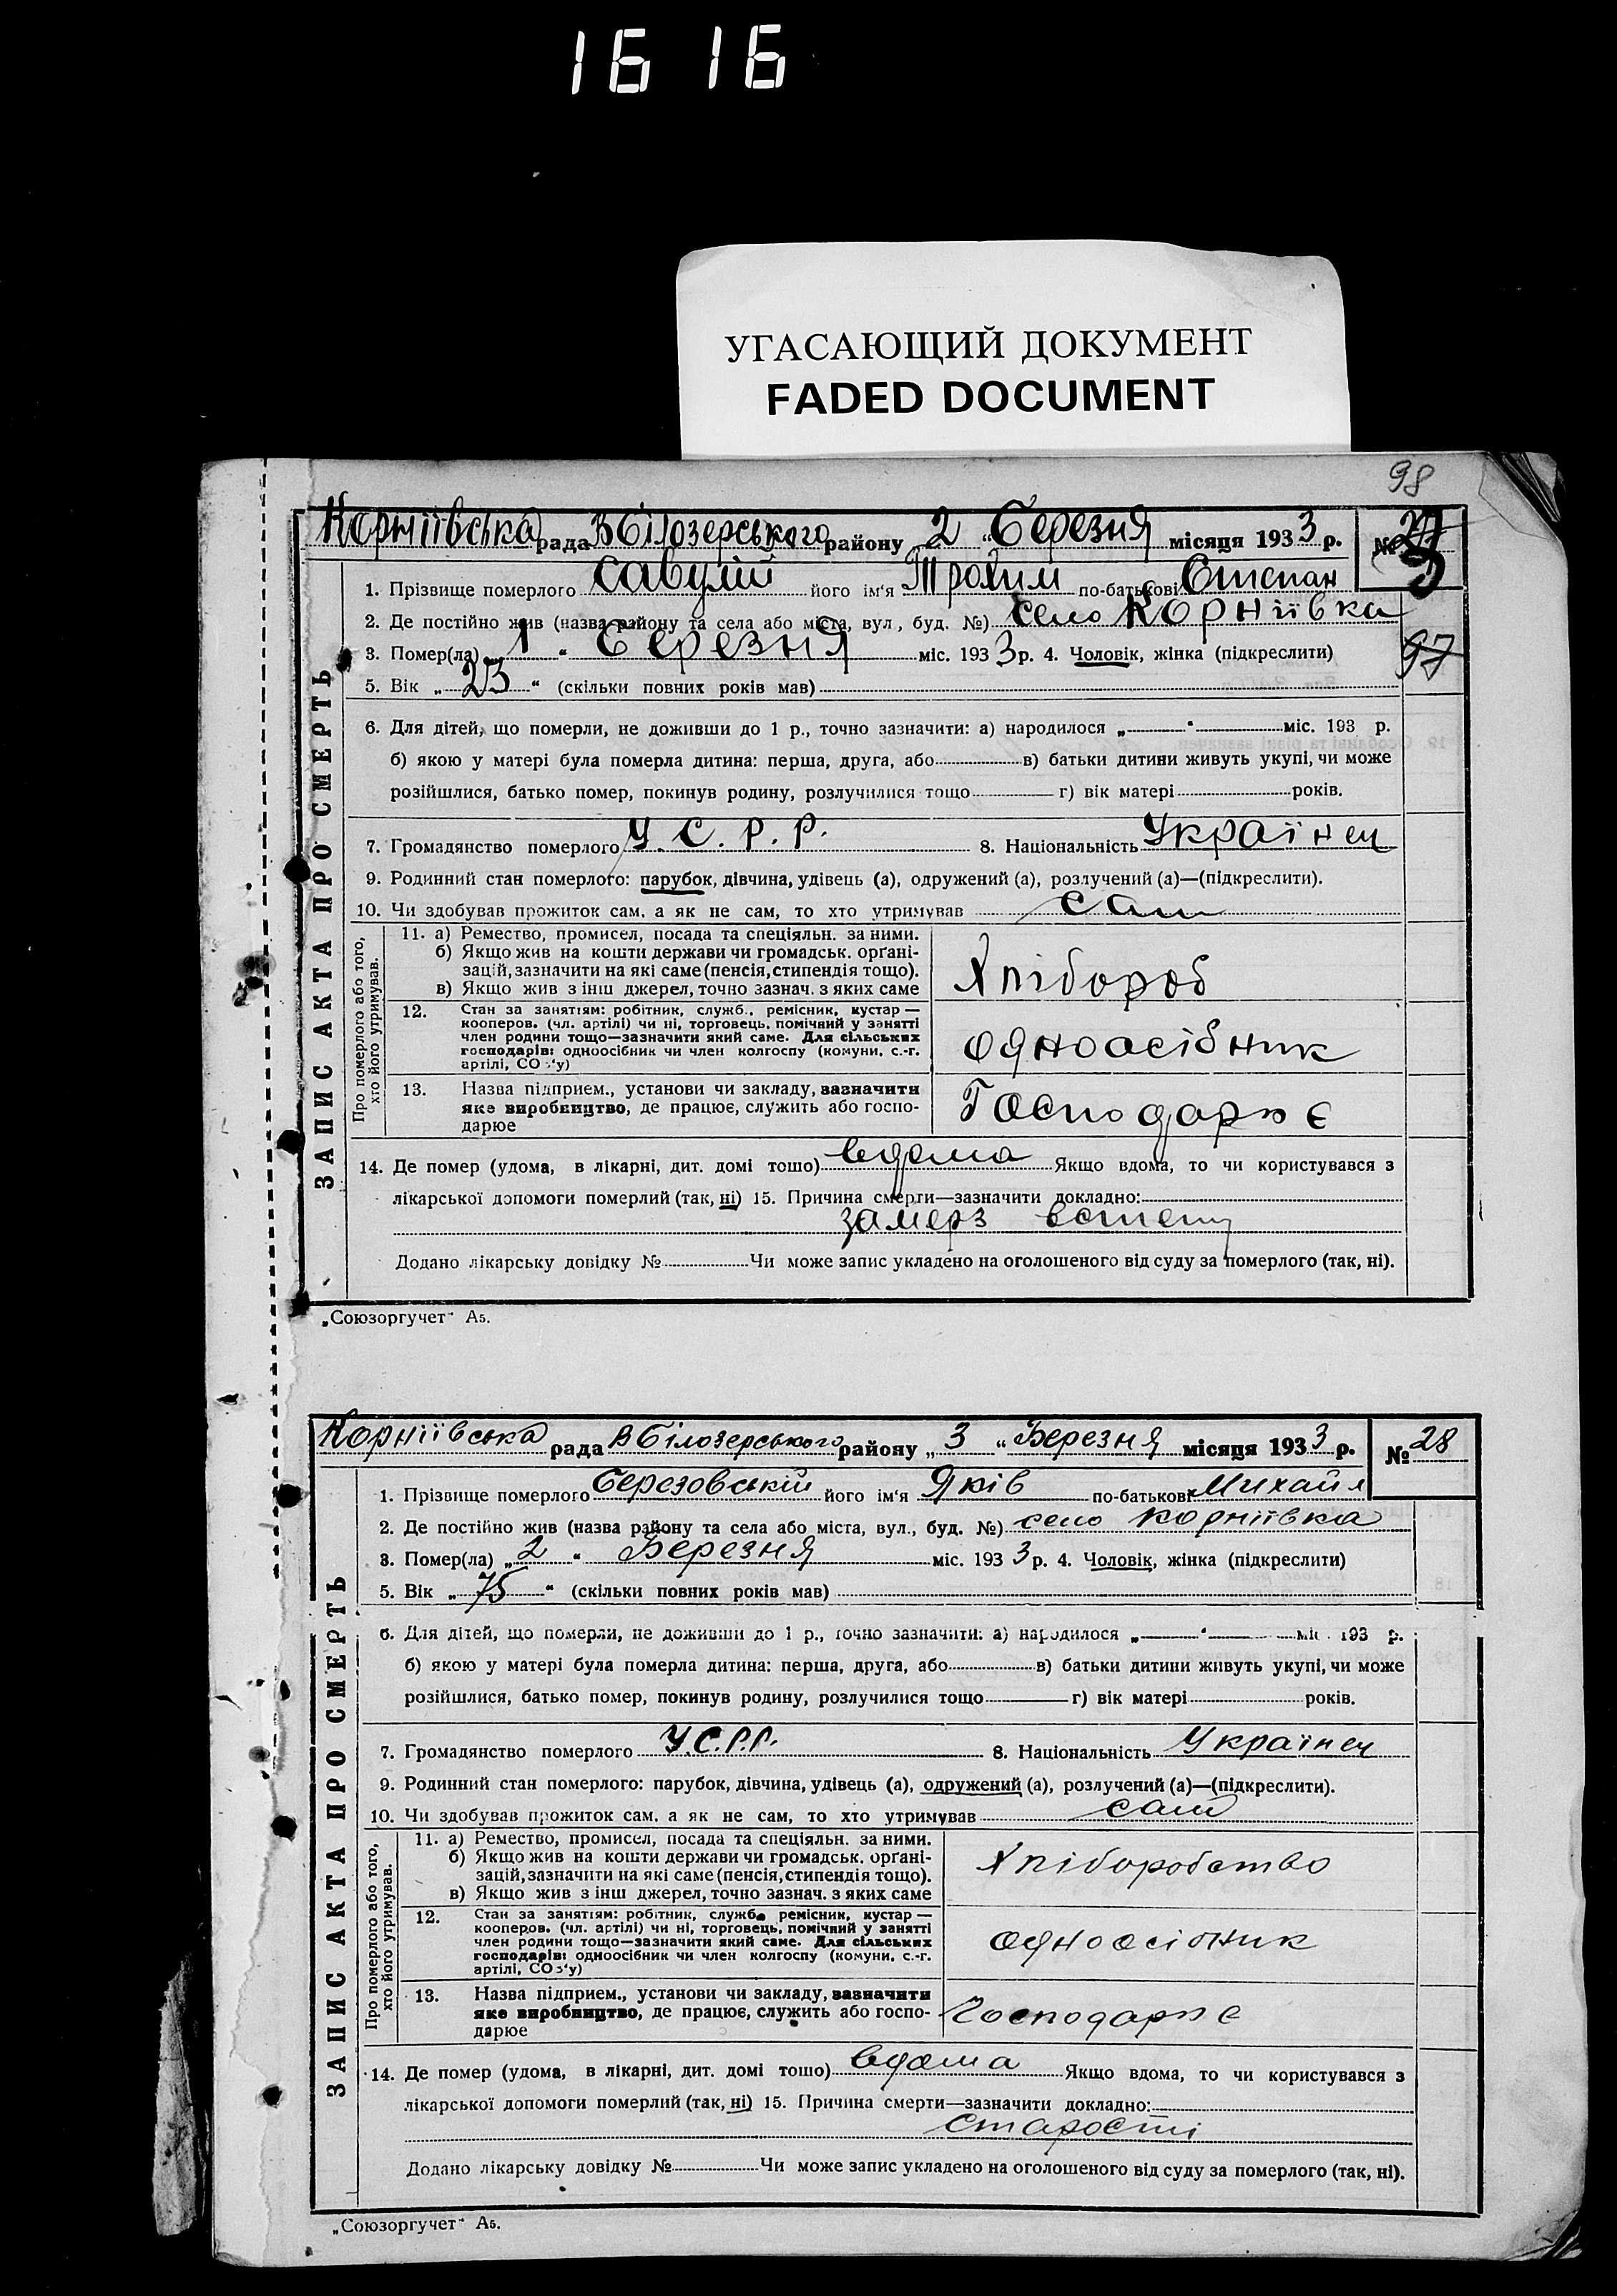 16 16
УГАСАЮЩИЙ ДОКУМЕНТ
FADED DOCUMENT
98
Корніївська рада ВБілозерського району „ 2 “ Березня місяця 1933 р. №
1. Прізвище померлого Савулій його ім'я Трохим по-батькові Степан
2. Де постійно жив (назва району та села або міста, вул., буд. №) село Корніївка
3. Помер(ла) „ 1 “ Березня міс. 1933 р. 4. Чоловік, жінка (підкреслити) 97
5. Вік „ 23 “ (скільки повних років мав)
6. Для дітей, що померли, не доживши до 1 р., точно зазначити: а) народилося „ “ міс. 193 р.
б) якою у матері була померла дитина: перша, друга, або в) батьки дитини живуть укупі, чи може
розійшлися, батько помер, покинув родину, розлучилися тощо г) вік матері років.
7. Громадянство померлого У.С.Р.Р. 8. Національність Українец
9. Родинний стан померлого: парубок, дівчина, удівець (а), одружений (а), розлучений (а)—(підкреслити).
10. Чи здобував прожиток сам, а як не сам, то хто утримував сам
ЗАПИС АКТА ПРО СМЕРТЬ
Про померлого або того, хто його утримував.
11. а) Ремество, промисел, посада та спеціяльн. за ними.
б) Якщо жив на кошти держави чи громадськ. орґані-
зацій, зазначити на які саме (пенсія, стипендія тощо).
в) Якщо жив з інш джерел, точно зазнач. з яких саме
Хлібороб
12. Стан за занятіям: робітник, служб., ремісник, кустар —
кооперов. (чл. артілі) чи ні, торговець, помічний у занятті
член родини тощо—зазначити який саме. Для сільських
господарів: одноосібник чи член колгоспу (комуни, с.-г.
артілі, СОз'у)
одноосібник
13. Назва підприєм., установи чи закладу, зазначити
яке виробництво, де працює, служить або госпо-
дарює
Господарює
14. Де помер (удома, в лікарні, дит. домі тошо) вдома Якщо вдома, то чи користувався з
лікарської допомоги померлий (так, ні) 15. Причина смерти—зазначити докладно:
замерз встепу
Додано лікарську довідку № Чи може запис укладено на оголошеного від суду за померлого (так, ні).
„Союзоргучет“ А5.
Корніївська рада ВБілозерського району „ 3 “ Березня місяця 1933 р. № 28
1. Прізвище померлого Березовській його ім'я Яків по-батькові Михайл
2. Де постійно жив (назва району та села або міста, вул., буд. №) село Корніївка
3. Помер(ла) „ 2 “ Березня міс. 1933 р. 4. Чоловік, жінка (підкреслити)
5. Вік „ 75 “ (скільки повних років мав)
6. Для дітей, що померли, не доживши до 1 р., точно зазначити: а) народилося „ “ міс. 193 р.
б) якою у матері була померла дитина: перша, друга, або в) батьки дитини живуть укупі, чи може
розійшлися, батько помер, покинув родину, розлучилися тощо г) вік матері років.
7. Громадянство померлого У.С.Р.Р. 8. Національність Українец
9. Родинний стан померлого: парубок, дівчина, удівець (а), одружений (а), розлучений (а)—(підкреслити).
10. Чи здобував прожиток сам, а як не сам, то хто утримував сам
ЗАПИС АКТА ПРО СМЕРТЬ
Про померлого або того, хто його утримував.
11. а) Ремество, промисел, посада та спеціяльн. за ними.
б) Якщо жив на кошти держави чи громадськ. орґані-
зацій, зазначити на які саме (пенсія, стипендія тощо).
в) Якщо жив з інш джерел, точно зазнач. з яких саме
Хліборобство
12. Стан за занятіям: робітник, служб. ремісник, кустар —
кооперов. (чл. артілі) чи ні, торговець, помічний у занятті
член родини тощо—зазначити який саме. Для сільських
господарів: одноосібник чи член колгоспу (комуни, с.-г.
артілі, СОз'у)
одноосібник
13. Назва підприєм., установи чи закладу, зазначити
яке виробництво, де працює, служить або госпо-
дарює
Господарює
14. Де помер (удома, в лікарні, дит. домі тошо) вдома Якщо вдома, то чи користувався з
лікарської допомоги померлий (так, ні) 15. Причина смерти—зазначити докладно:
старости
Додано лікарську довідку № Чи може запис укладено на оголошеного від суду за померлого (так, ні).
„Союзоргучет“ А5.